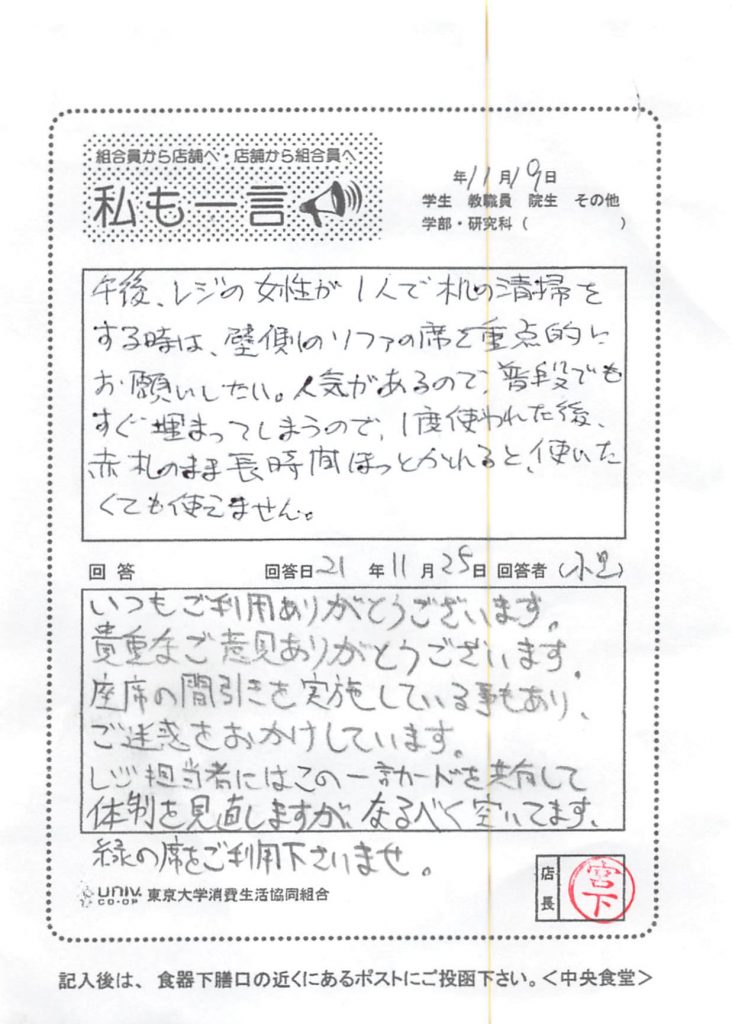 組合員から店舗へ・店舗から組合員へ
私も一言
年11月19日
学生 教職員 院生 その他
学部・研究科( )
午後、レジの女性が1人で机の清掃を
する時は、壁側のソファの席を重点的に
お願いしたい。人気があるので、普段でも
すぐ埋まってしまうので、1度使われた後、
赤札のまま長時間ほっとかれると、使いた
くても使えません。
回答 回答日21年11月25日 回答者( )
いつもご利用ありがとうございます。
貴重なご意見ありがとうございます。
座席の間引きを実施している事もあり、
ご迷惑をおかけしています。
レジ担当者にはこの一言カードを共有して
体制を見直しますが、なるべく空いてます、
緑の席をご利用下さいませ。
UNIV.
CO-OP 東京大学消費生活協同組合
店長
宮下
記入後は、食器下膳口の近くにあるポストにご投函下さい。<中央食堂>